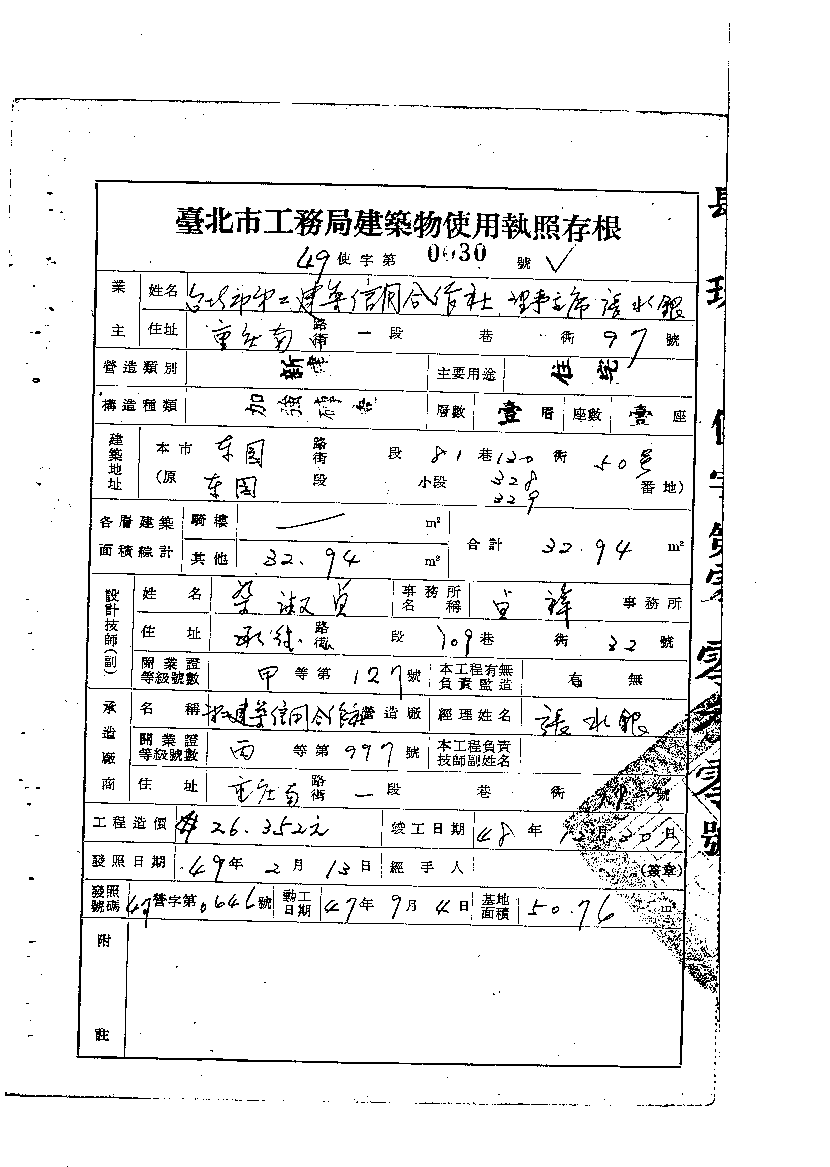 臺北市工務局建築物使用執照存根
49使字第0030號
業主 姓名 台北市第二建築信用合作社 理事主席 張水銀
住址 重慶南路街一段 巷 衖 97號
營造類別 新建 主要用途 住宅
構造種類 加強磚 層數 壹層 座數 壹座
建築地址 本市 东園路街 段 81巷120衖 50号
(原 东園段 小段 328 329 番地)
各層建築面積綜計 騎樓 m² 合計 32.94 m²
其他 32.94 m²
設計技師(副) 姓名 淑貞 事務所名稱 祥 事務所
住址 承德路街 段 109巷 衖 32號
開業證等級號數 甲等第127號 本工程有無負責監造 有 無
承造廠商 名稱 建築信用合作社營造廠 經理姓名 張水銀
開業證等級號數 丙等第997號 本工程負責技師副姓名
住址 重慶南路街一段 巷 衖 號
工程造價 26.352元 竣工日期 48年12月30日
發照日期 49年2月13日 經手人 (簽章)
發照號碼 47營字第0646號 動工日期 47年9月4日 基地面積 50.76 m²
附註
使字第零零叁零號